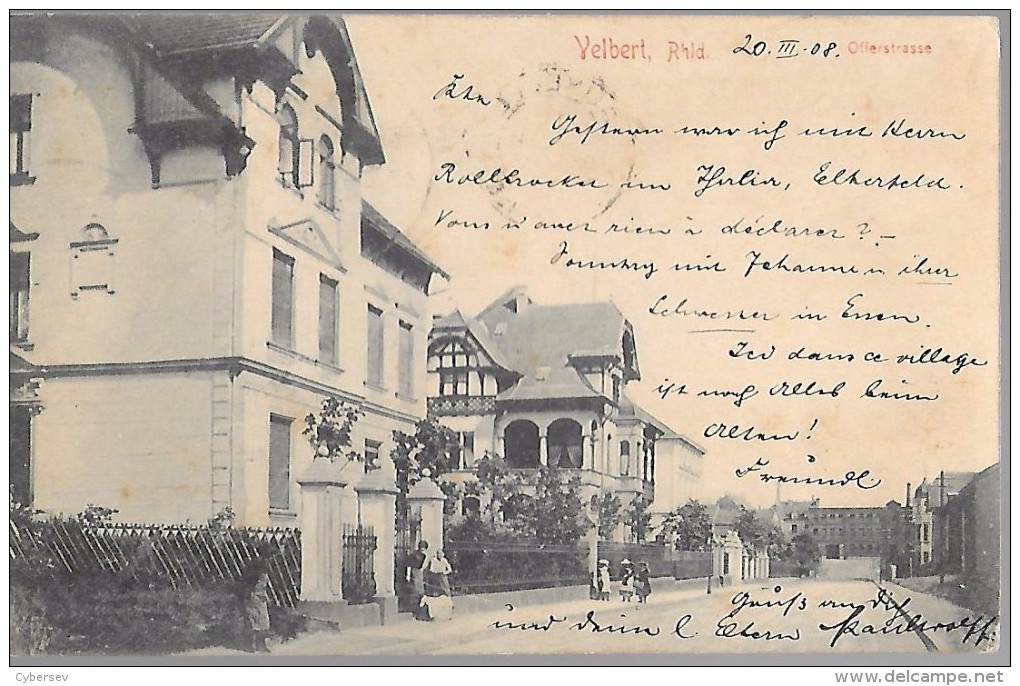 Velbert, Rhld. 20. III. 08. Offerstrasse
Gestern war ich mit Herrn
im Thalia, Elberfeld.
Vous n'avez rien à déclarer? –
Sonntag mit Johanne u ihrer
Schwester in Essen.
Ici dans ce village
ist noch Alles beim
Alten!
Freundl.
Gruß an dich
und deine l. Eltern Paul Wolff
Cybersev
www.delcampe.net